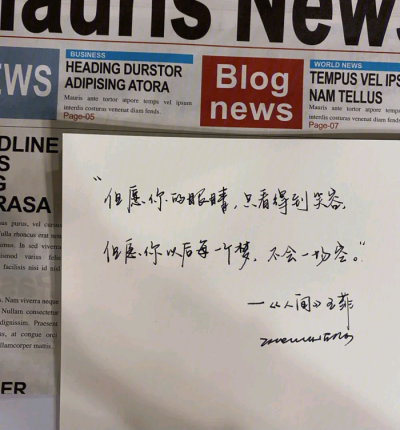 Mauris News
EWS
BUSINESS
HEADING DURSTOR
ADIPISING ATORA
Mauris ante tortor atpore temps vel ipsum
interdis costurus venenat diam fends.
Page-05
Blog
news
WORLD NEWS
TEMPUS VEL IPS
NAM TELLUS
Mauris ante tortor atpore tempo
costurus venenat diam fends.
Page-07
DLINE
S
G
RASA
purus, vel
rhoncus erat
In sed viverra
varius
facilisis nisi id nisl
Nam viverra neque
Nullam consectetur
dignissim. Praesent
at congue orci
ullamcorper mattis.
ER
“但愿你的眼睛,只看得到笑容,
但愿你以后每一个梦,不会一场空。”
—《人间》王菲